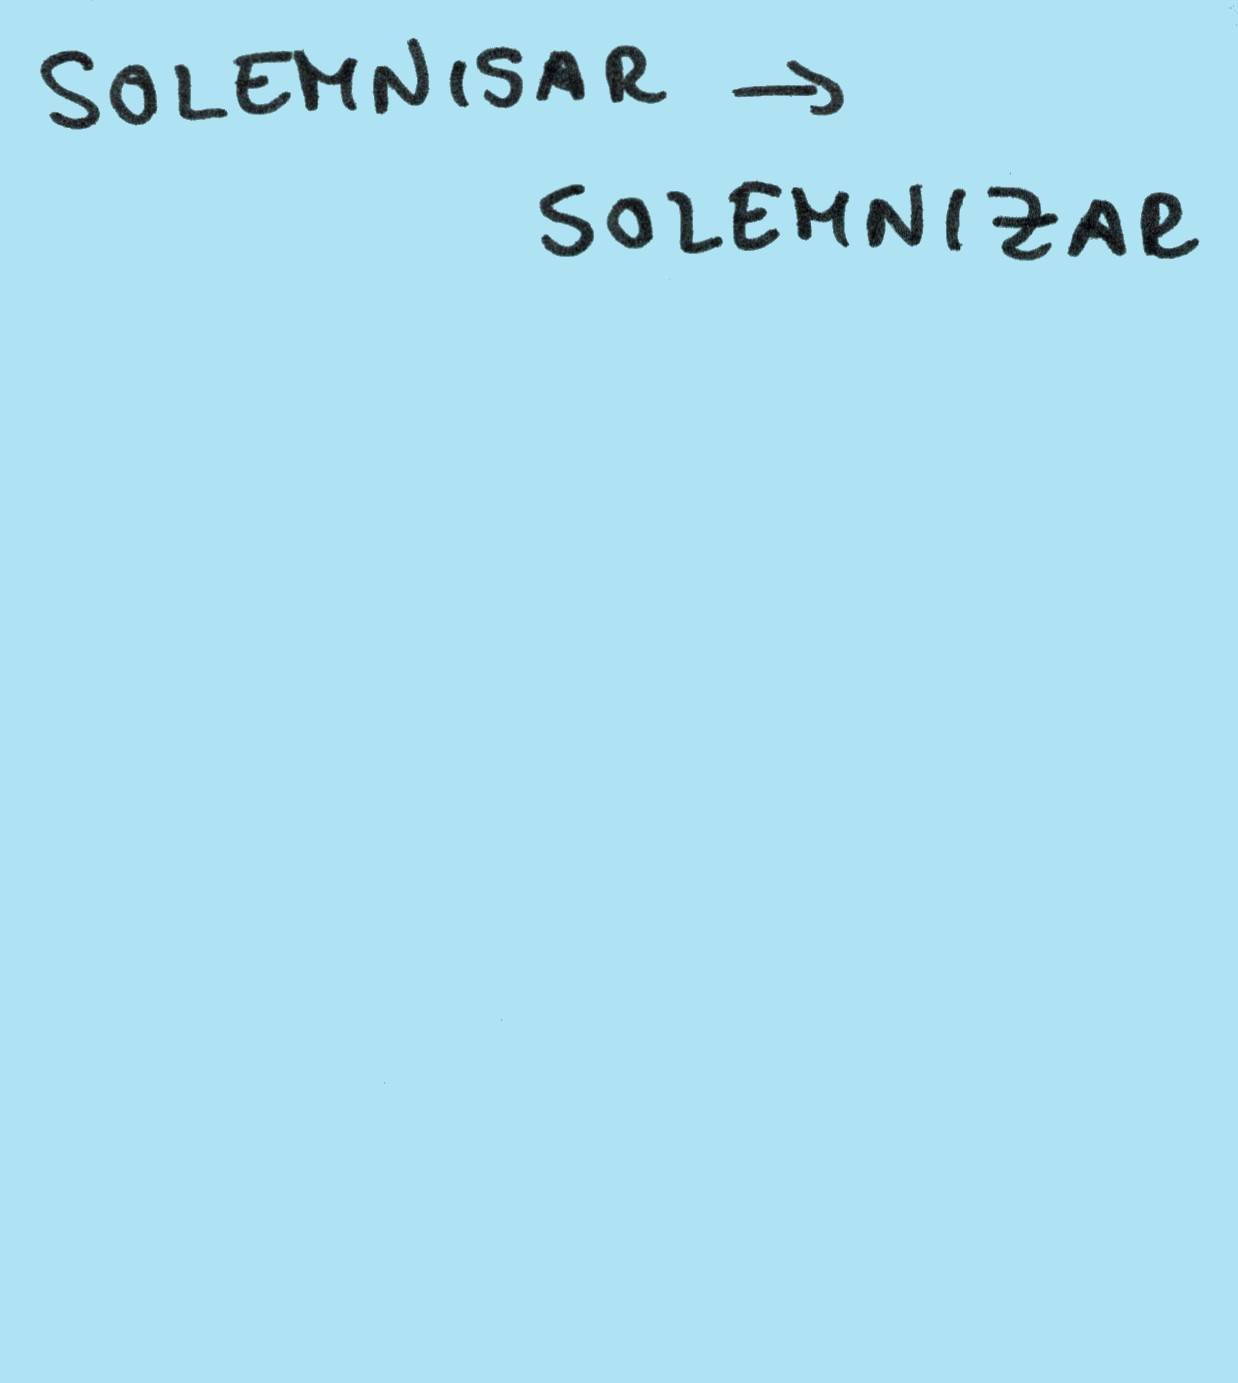 SOLEMNISAR →
SOLEMNIZAR